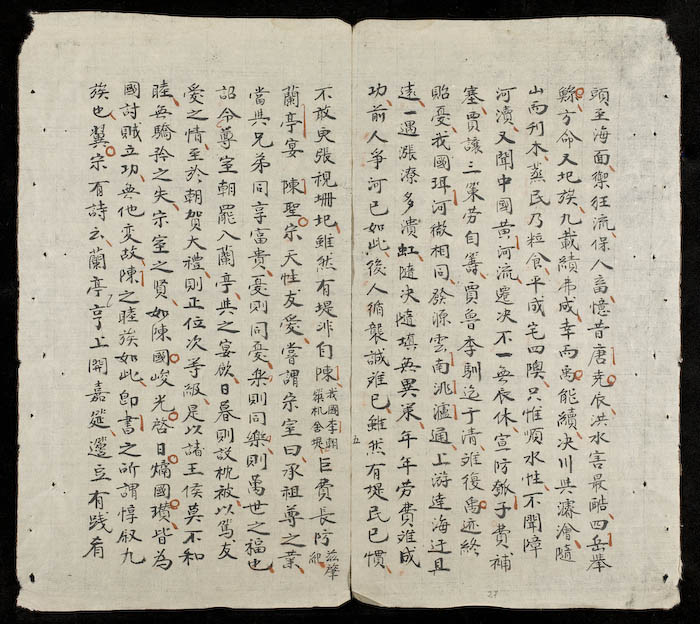 頭至海面禦狂流保人畜憶昔唐堯辰洪水害最酷四岳舉
鯀方命又圯族九載績弗成幸而禹能續决川與濬澮隨
山而刊木蒸民乃粒食平成宅四隩只惟順水性不聞障
河瀆又聞中國黄河流遷决不一無辰休宣防瓠子費補
塞賈讓三策劳自籌賈魯李馴迄于清难復禹迹終
貽憂我國珥河微相同發源雲南洮瀘通上游逹海迂且
遠一遇漲潦多潰虹隨决隨填無異策年年劳費难成
功前人爭河已如此後人循襲誠难已雖然有堤民已慣
不敢更張視珊圯雖然有堤非自陳我國李朝機舍堤巨費長防
蘭亭宴陳聖宗天性友愛嘗謂宗室曰承祖尊之業
當與兄弟同享富貴憂則同憂樂則同樂則萬世之福也
詔令尊室朝罷入蘭亭與之宴飲日暮則設枕被以篤友
愛之情至於朝賀大禮則正位次等級是以諸王侯莫不和
睦無驕矜之失宗室之賢如陳國峻光啓日燏國瓚皆為
國討賊立功與他变故陳之睦族如此卽書之所謂惇叙九
族也翼宗有詩云蘭亭亭上開嘉筵籩豆有践肴
五
27